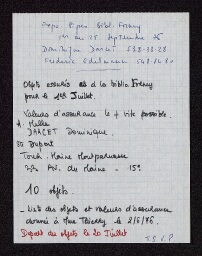 Expo. Bibl. Forney
25 Septembre 76
Dominique DARCET 538-33-28
Frederic Edelmann 548-74-80
Objets assurés à la biblio Forney
pour le 14 Juillet.
Valeurs d'assurance le + vite possible.
à Melle
DARCET Dominique.
SS Dupont
Tour Maine Montparnasse
Av. du Maine - 15e
10 objets
- Liste des objets et valeurs d'assurance
donnée à Mme Thierry le 2/6/76.
Depart des objets le 20 Juillet
TSVP